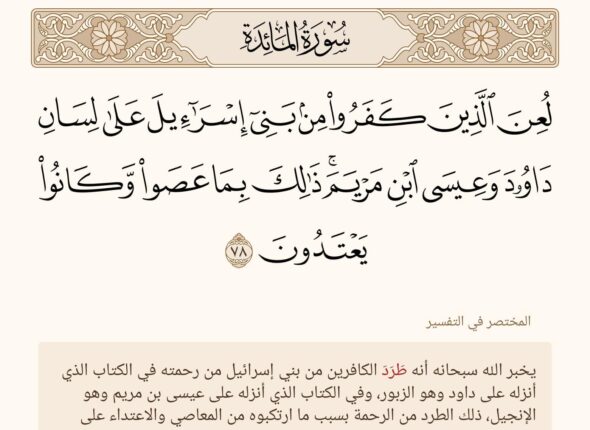 سُورَةُ المَائِدَةِ
لُعِنَ ٱلَّذِينَ كَفَرُواْ مِنۢ بَنِيٓ إِسۡرَٰٓءِيلَ عَلَىٰ لِسَانِ
دَاوُۥدَ وَعِيسَى ٱبۡنِ مَرۡيَمَۚ ذَٰلِكَ بِمَا عَصَواْ وَّكَانُواْ
يَعۡتَدُونَ ٧٨
المختصر في التفسير
يخبر الله سبحانه أنه طَرَدَ الكافرين من بني إسرائيل من رحمته في الكتاب الذي
أنزله على داود وهو الزبور، وفي الكتاب الذي أنزله على عيسى بن مريم وهو
الإنجيل، ذلك الطرد من الرحمة بسبب ما ارتكبوه من المعاصي والاعتداء على